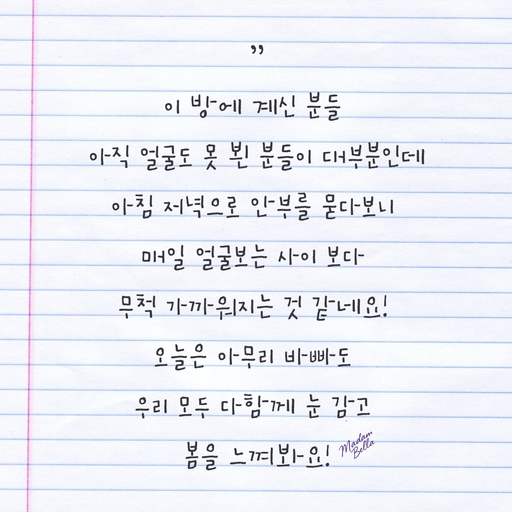 ”
이 방에 계신 분들
아직 얼굴도 못 뵌 분들이 대부분인데
아침 저녁으로 안부를 묻다보니
매일 얼굴보는 사이 보다
무척 가까워지는 것 같네요!
오늘은 아무리 바빠도
우리 모두 다함께 눈 감고
봄을 느껴봐요!
Madam
Bella